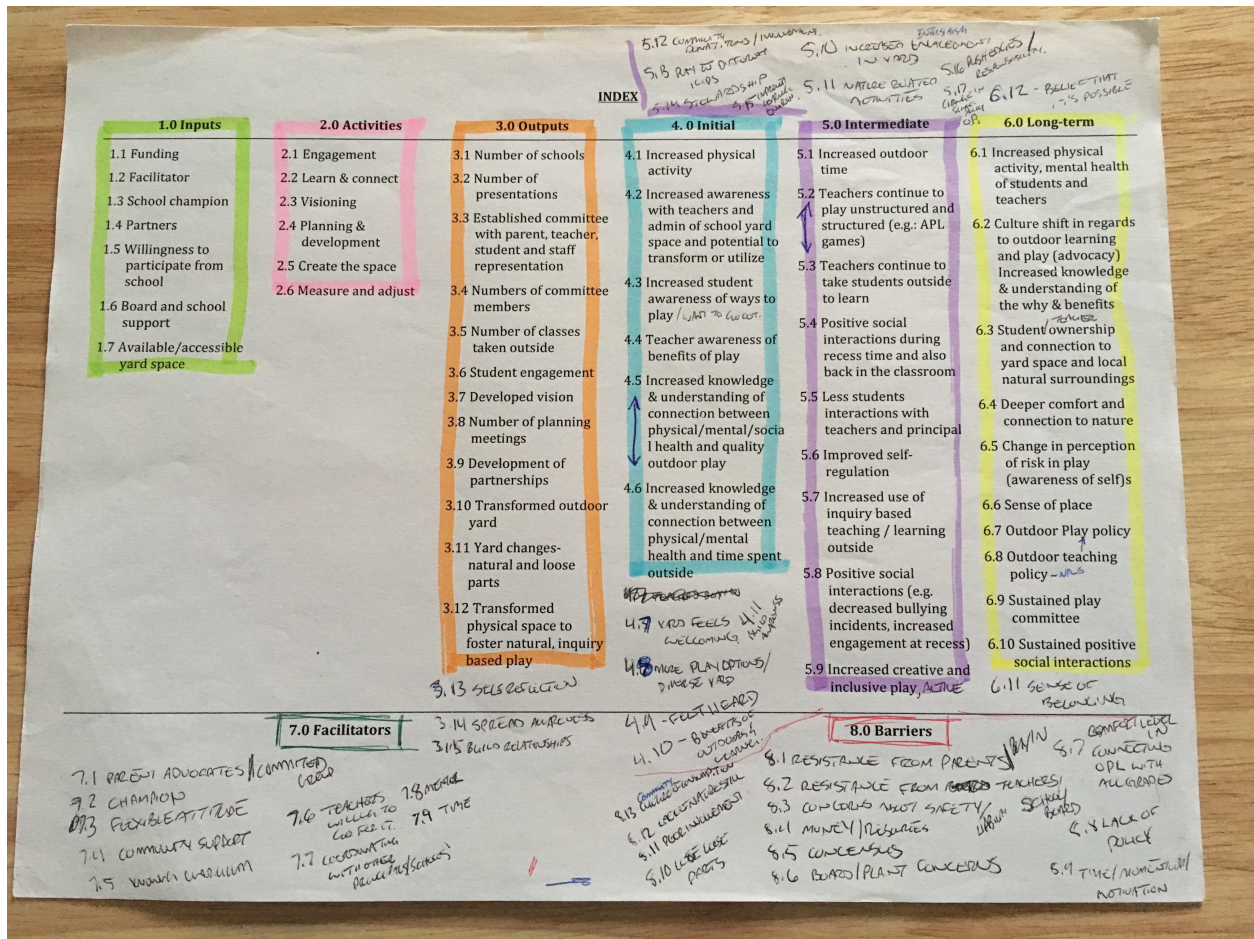 5.12 COMMUNITY
DONATIONS/INVOLVEMENT.
5.13 PLAY W DIFFERENT
KIDS
5.14 STEWARDSHIP
5.10 INCREASED ENGAGEMENT/
IN YARD
5.11 NATURE RELATED
ACTIVITIES
5.16
RESPONSIBILITY.
5.17
CHANGE IN
6.12 - BELIEF THAT
IT'S POSSIBLE
INDEX
1.0 Inputs
1.1 Funding
1.2 Facilitator
1.3 School champion
1.4 Partners
1.5 Willingness to
participate from
school
1.6 Board and school
support
1.7 Available/accessible
yard space
2.0 Activities
2.1 Engagement
2.2 Learn & connect
2.3 Visioning
2.4 Planning &
development
2.5 Create the space
2.6 Measure and adjust
3.0 Outputs
3.1 Number of schools
3.2 Number of
presentations
3.3 Established committee
with parent, teacher,
student and staff
representation
3.4 Numbers of committee
members
3.5 Number of classes
taken outside
3.6 Student engagement
3.7 Developed vision
3.8 Number of planning
meetings
3.9 Development of
partnerships
3.10 Transformed outdoor
yard
3.11 Yard changes-
natural and loose
parts
3.12 Transformed
physical space to
foster natural, inquiry
based play
3.13 SELF REFLECTION
3.14 SPREAD AWARENESS
3.15 BUILD RELATIONSHIPS
4. 0 Initial
4.1 Increased physical
activity
4.2 Increased awareness
with teachers and
admin of school yard
space and potential to
transform or utilize
4.3 Increased student
awareness of ways to
play /WANT TO GO OUT.
4.4 Teacher awareness of
benefits of play
4.5 Increased knowledge
& understanding of
connection between
physical/mental/socia
l health and quality
outdoor play
4.6 Increased knowledge
& understanding of
connection between
physical/mental
health and time spent
outside
4.7 YARD FEELS
WELCOMING
4.11
4.8 MORE PLAY OPTIONS/
DIVERSE YARD
4.9 - FELT HEARD
4.10 - BENEFITS OF
OUTDOORS &
LEARNING.
5.0 Intermediate
5.1 Increased outdoor
time
5.2 Teachers continue to
play unstructured and
structured (e.g.: APL
games)
5.3 Teachers continue to
take students outside
to learn
5.4 Positive social
interactions during
recess time and also
back in the classroom
5.5 Less students
interactions with
teachers and principal
5.6 Improved self-
regulation
5.7 Increased use of
inquiry based
teaching / learning
outside
5.8 Positive social
interactions (e.g.
decreased bullying
incidents, increased
engagement at recess)
5.9 Increased creative and
inclusive play, ACTIVE
6.0 Long-term
6.1 Increased physical
activity, mental health
of students and
teachers
6.2 Culture shift in regards
to outdoor learning
and play (advocacy)
Increased knowledge
& understanding of
the why & benefits
/TEACHER
6.3 Student ownership
and connection to
yard space and local
natural surroundings
6.4 Deeper comfort and
connection to nature
6.5 Change in perception
of risk in play
(awareness of self)s
6.6 Sense of place
6.7 Outdoor Play policy
6.8 Outdoor teaching
policy
6.9 Sustained play
committee
6.10 Sustained positive
social interactions
6.11 SENSE OF
BELONGING
7.0 Facilitators
7.1 PARENT ADVOCATES/COMMITTED
GROUP
7.2 CHAMPION
7.3 FLEXIBLE ATTITUDE
7.4 COMMUNITY SUPPORT
7.5 CURRICULUM
7.6 TEACHERS
WILLING TO
GO FOR IT.
7.7 COORDINATING
WITH OTHER
7.8 MENTOR
7.9 TIME
8.0 Barriers
8.1 RESISTANCE FROM PARENTS/ADMIN
8.2 RESISTANCE FROM TEACHERS/
SCHOOL/
BOARD
8.3 CONCERNS ABOUT SAFETY/
LIABILITY
8.4 MONEY/RESOURCES
8.5 CONSENSUS
8.6 BOARD/PLANT CONCERNS
8.7 COMFORT LEVEL
IN
CONNECTING
OPL WITH
ALL GRADES
8.8 LACK OF
POLICY
8.9 TIME/MOMENTUM/
MOTIVATION
8.10 LOOSE
PARTS
8.11 POOR INVOLVEMENT
8.12
8.13 COMMUNITY